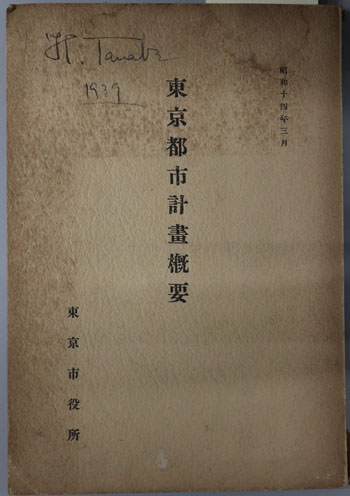 昭和十四年三月
東京都市計畫概要
東京市役所
H. Tanabe
1939